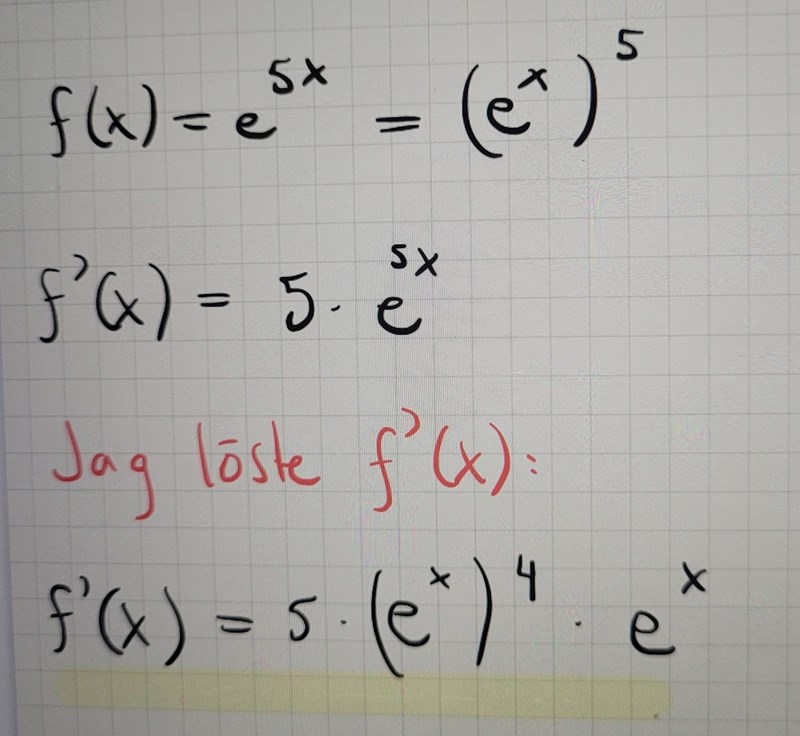 f(x) = e^{5x} = (e^x)^5
f'(x) = 5 · e^{5x}
Jag löste f'(x):
f'(x) = 5 · (e^x)^4 · e^x